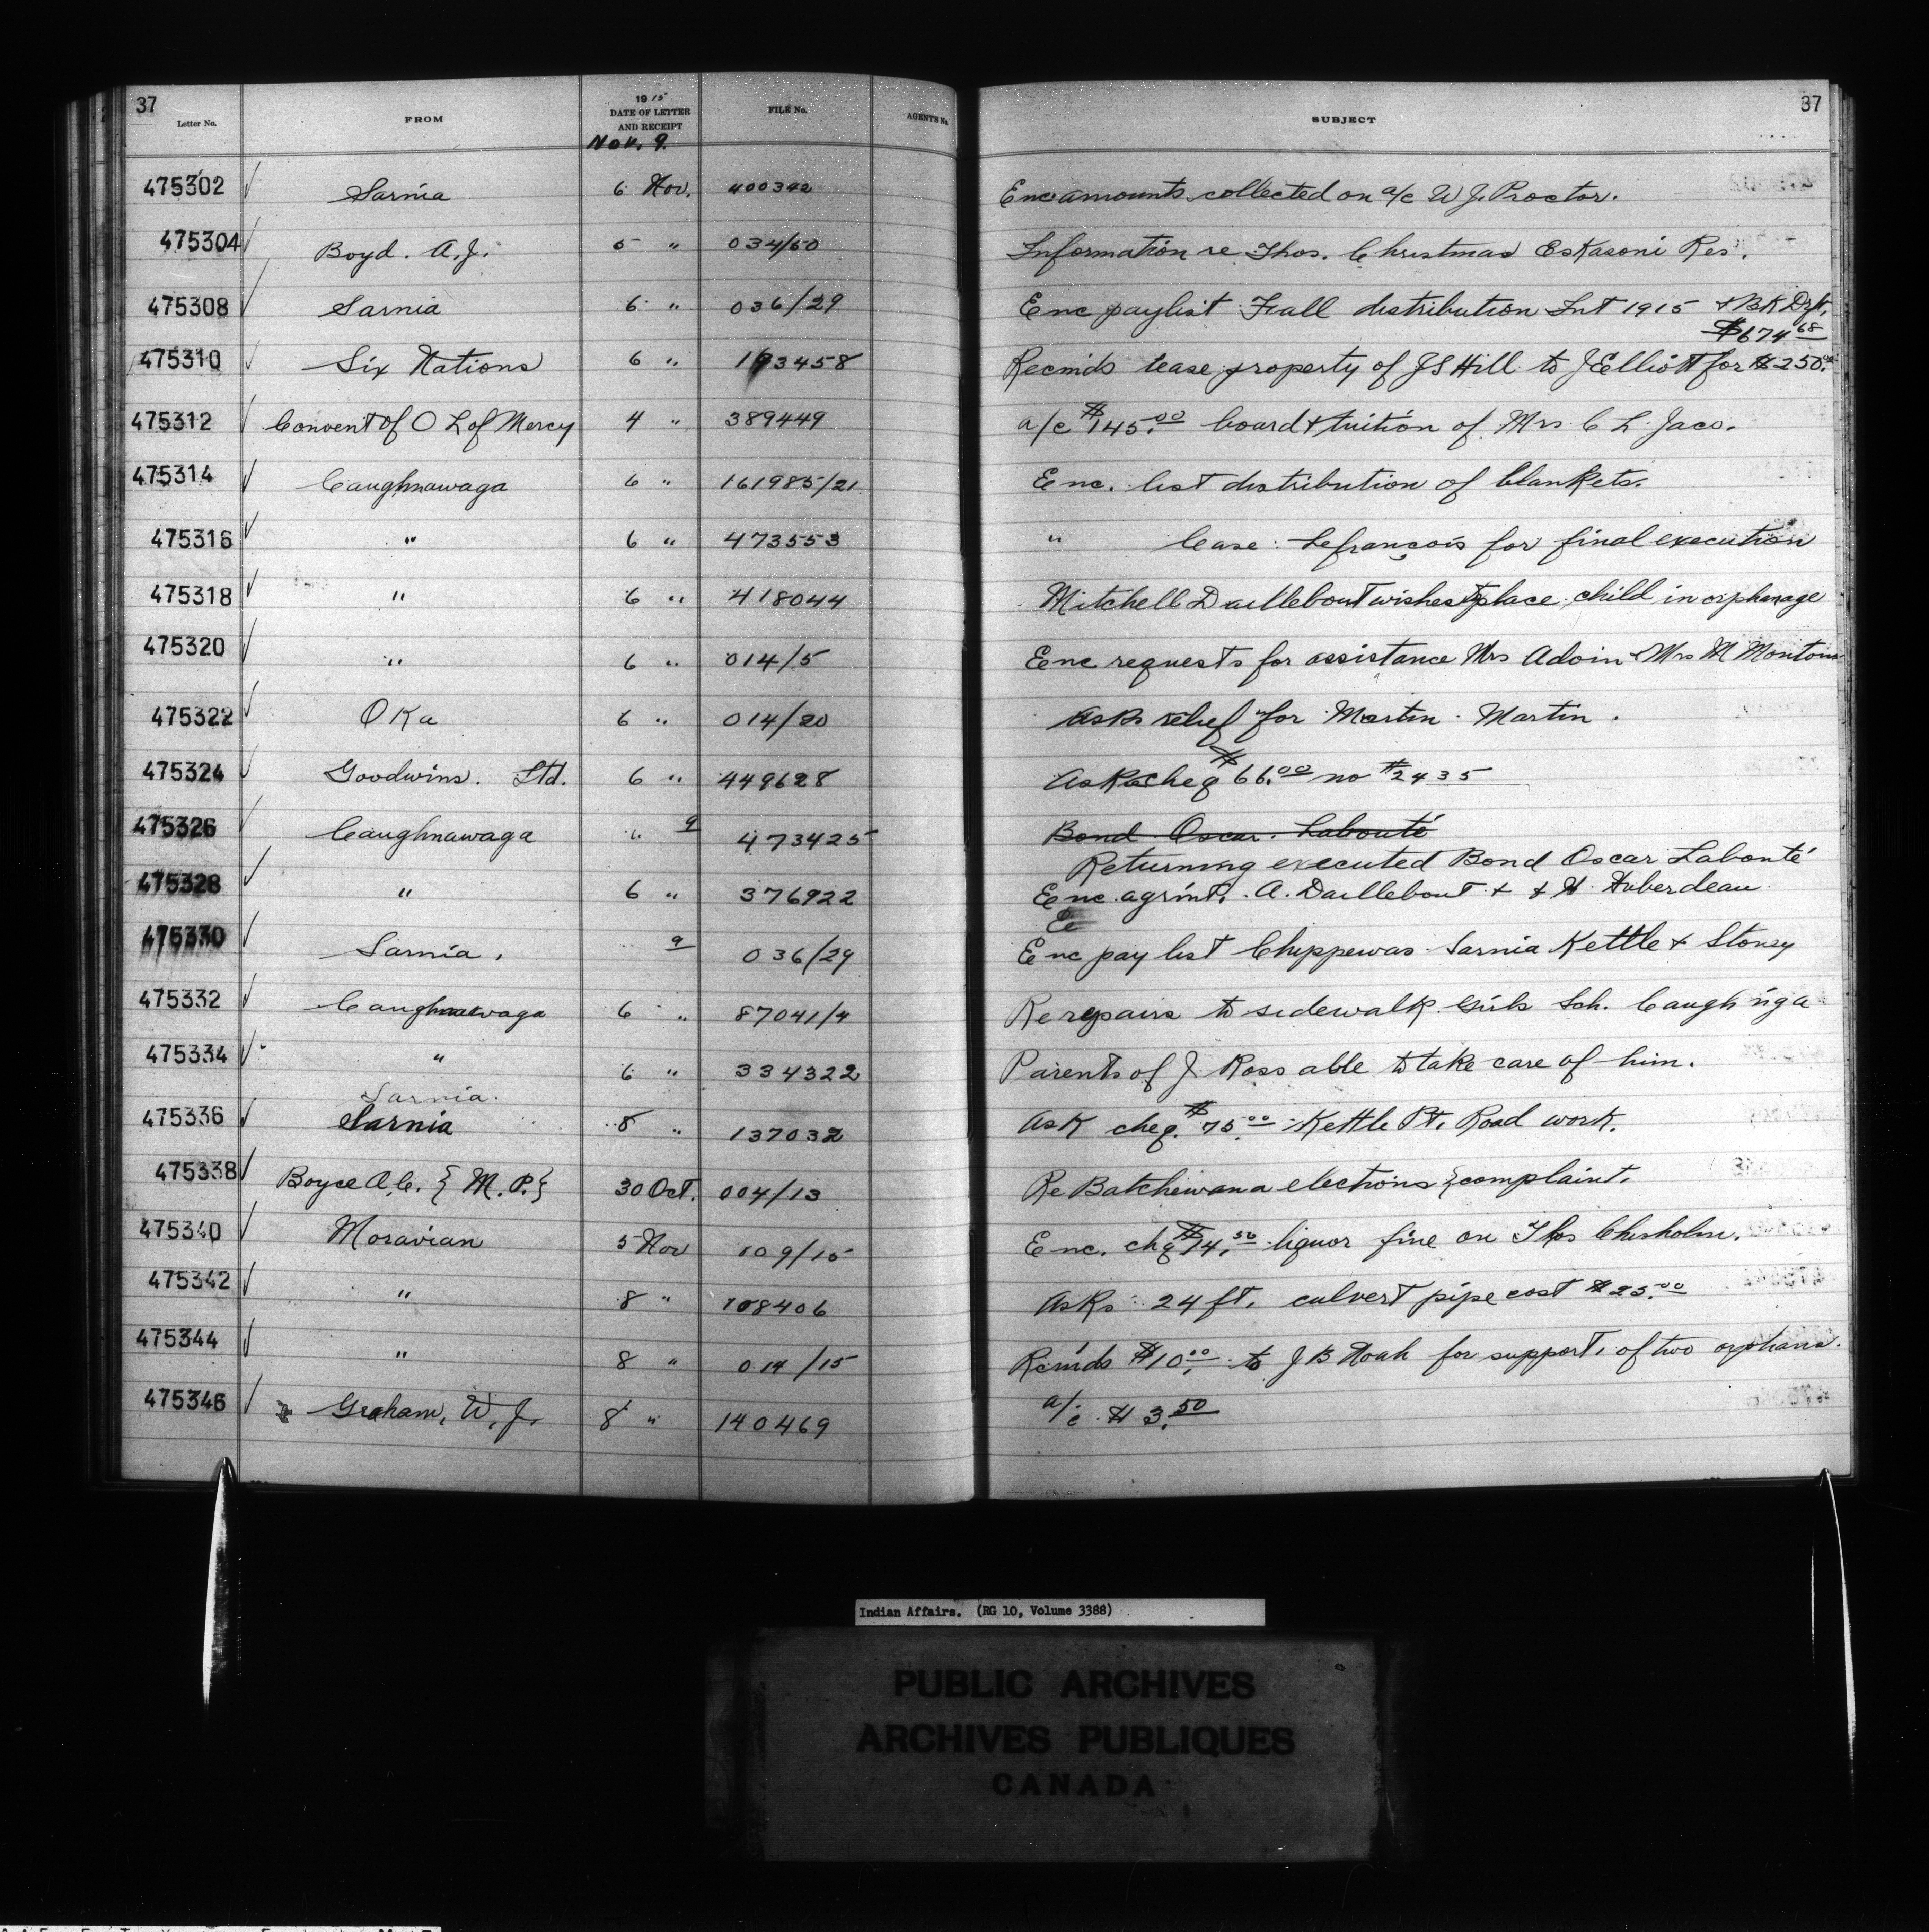 37
Letter No. FROM 1915 DATE OF LETTER AND RECEIPT FILE No. AGENT'S No. SUBJECT 37
Nov. 9.
475302 Sarnia 6 Nov. 400392 Enc amounts collected on a/c W J. Proctor.
475304 Boyd. A.J. 5 " 034/50 Information re Thos. Christmas Eskasoni Res.
475308 Sarnia 6 " 036/29 Enc paylist Fall distribution Int 1915 & BK Dft.
$674.68
475310 Six Nations 6 " 193458 Recmds lease property of J S Hill to J Elliott for $250.00
475312 Convent of O L of Mercy 4 " 389449 a/c $145.00 board & tuition of Mrs C L Jaco.
475314 Caughnawaga 6 " 161985/21 Enc. list distribution of blankets.
475316 " 6 " 473553 " lease: Lefrançois for final execution
475318 " 6 " 418044 Mitchell Daillebout wishes to place child in orphanage
475320 " 6 " 014/5 Enc requests for assistance Mrs Adoin & Mrs M
475322 Oka 6 " 014/20 Asks relief for Martin Martin.
475324 Goodwins. Ltd. 6 " 449628 Asks cheq $66.00 no #2435
475326 Caughnawaga " 9 473425 Bond Oscar Labonté
Returning executed Bond Oscar Labonté
475328 " 6 " 376922 Enc. agrmt. A. Daillebout & & H. Huberdeau
Ee
475330 Sarnia, 9 036/29 Enc pay list Chippewas Sarnia Kettle & Stoney
475332 Caughnawaga 6 " 87041/4 Re repairs to sidewalk Girls Sch. Caugh'n'ga
475334 " 6 " 334322 Parents of J. Ross able to take care of him.
Sarnia.
475336 Sarnia 8 " 137032 Ask cheq. $75.00 Kettle Pt. Road work.
475338 Boyce A.C. {M.P.} 30 Oct. 004/13 Re Batchewana elections {complaint.
475340 Moravian 5 Nov 109/15 Enc. chq $14.50 liquor fine on Thos Chisholm.
475342 " 8 " 108406 Asks 24 ft. culvert pipe cost $25.00
475344 " 8 " 014/15 Recmds $10.00 to J B Noah for support. of two orphans.
475346 Graham, W. J. 8 " 140469 a/c $3.50
Indian Affairs. (RG 10, Volume 3388)
PUBLIC ARCHIVES
ARCHIVES PUBLIQUES
CANADA